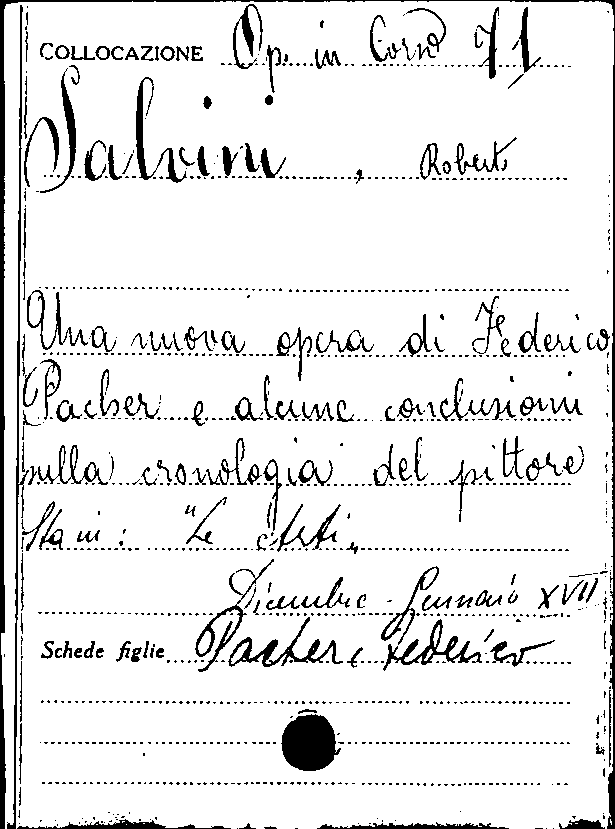 COLLOCAZIONE Op. in Corso 71
Salvini, Roberto
Una nuova opera di Federico
Pacher e alcune conclusioni
sulla cronologia del pittore
Sta in: "Le Arti"
Dicembre - Gennaio XVII
Schede figlie Pacher, Federico